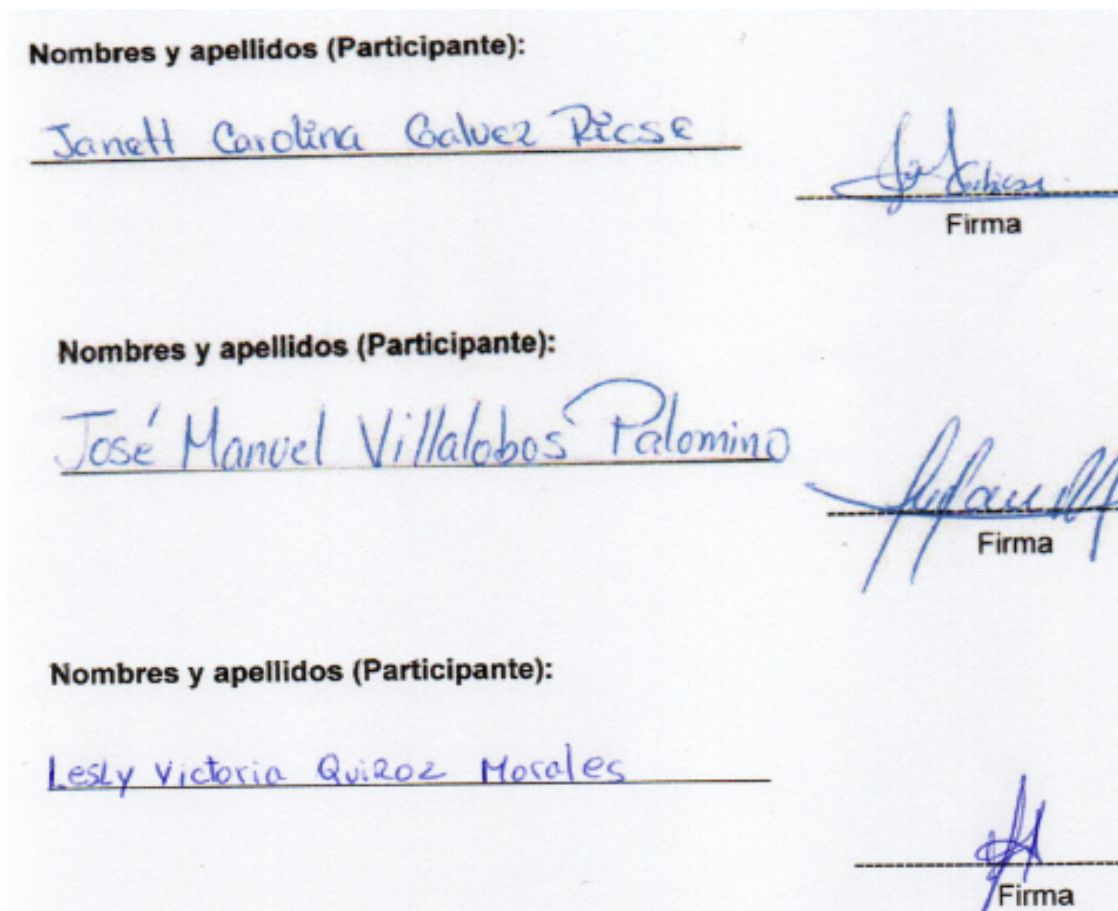 Nombres y apellidos (Participante):
Janett Carolina Galvez Ricse
Firma
Nombres y apellidos (Participante):
José Manuel Villalobos Palomino
Firma
Nombres y apellidos (Participante):
Lesly Victoria Quiroz Morales
Firma